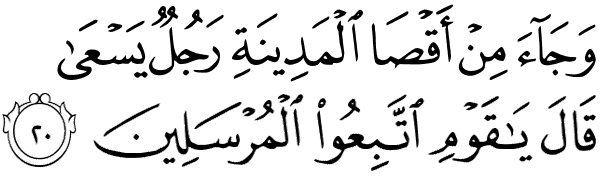 وَجَآءَ مِنْ أَقْصَا ٱلْمَدِينَةِ رَجُلٌ يَسْعَىٰ
قَالَ يَـٰقَوْمِ ٱتَّبِعُوا۟ ٱلْمُرْسَلِينَ ٢٠